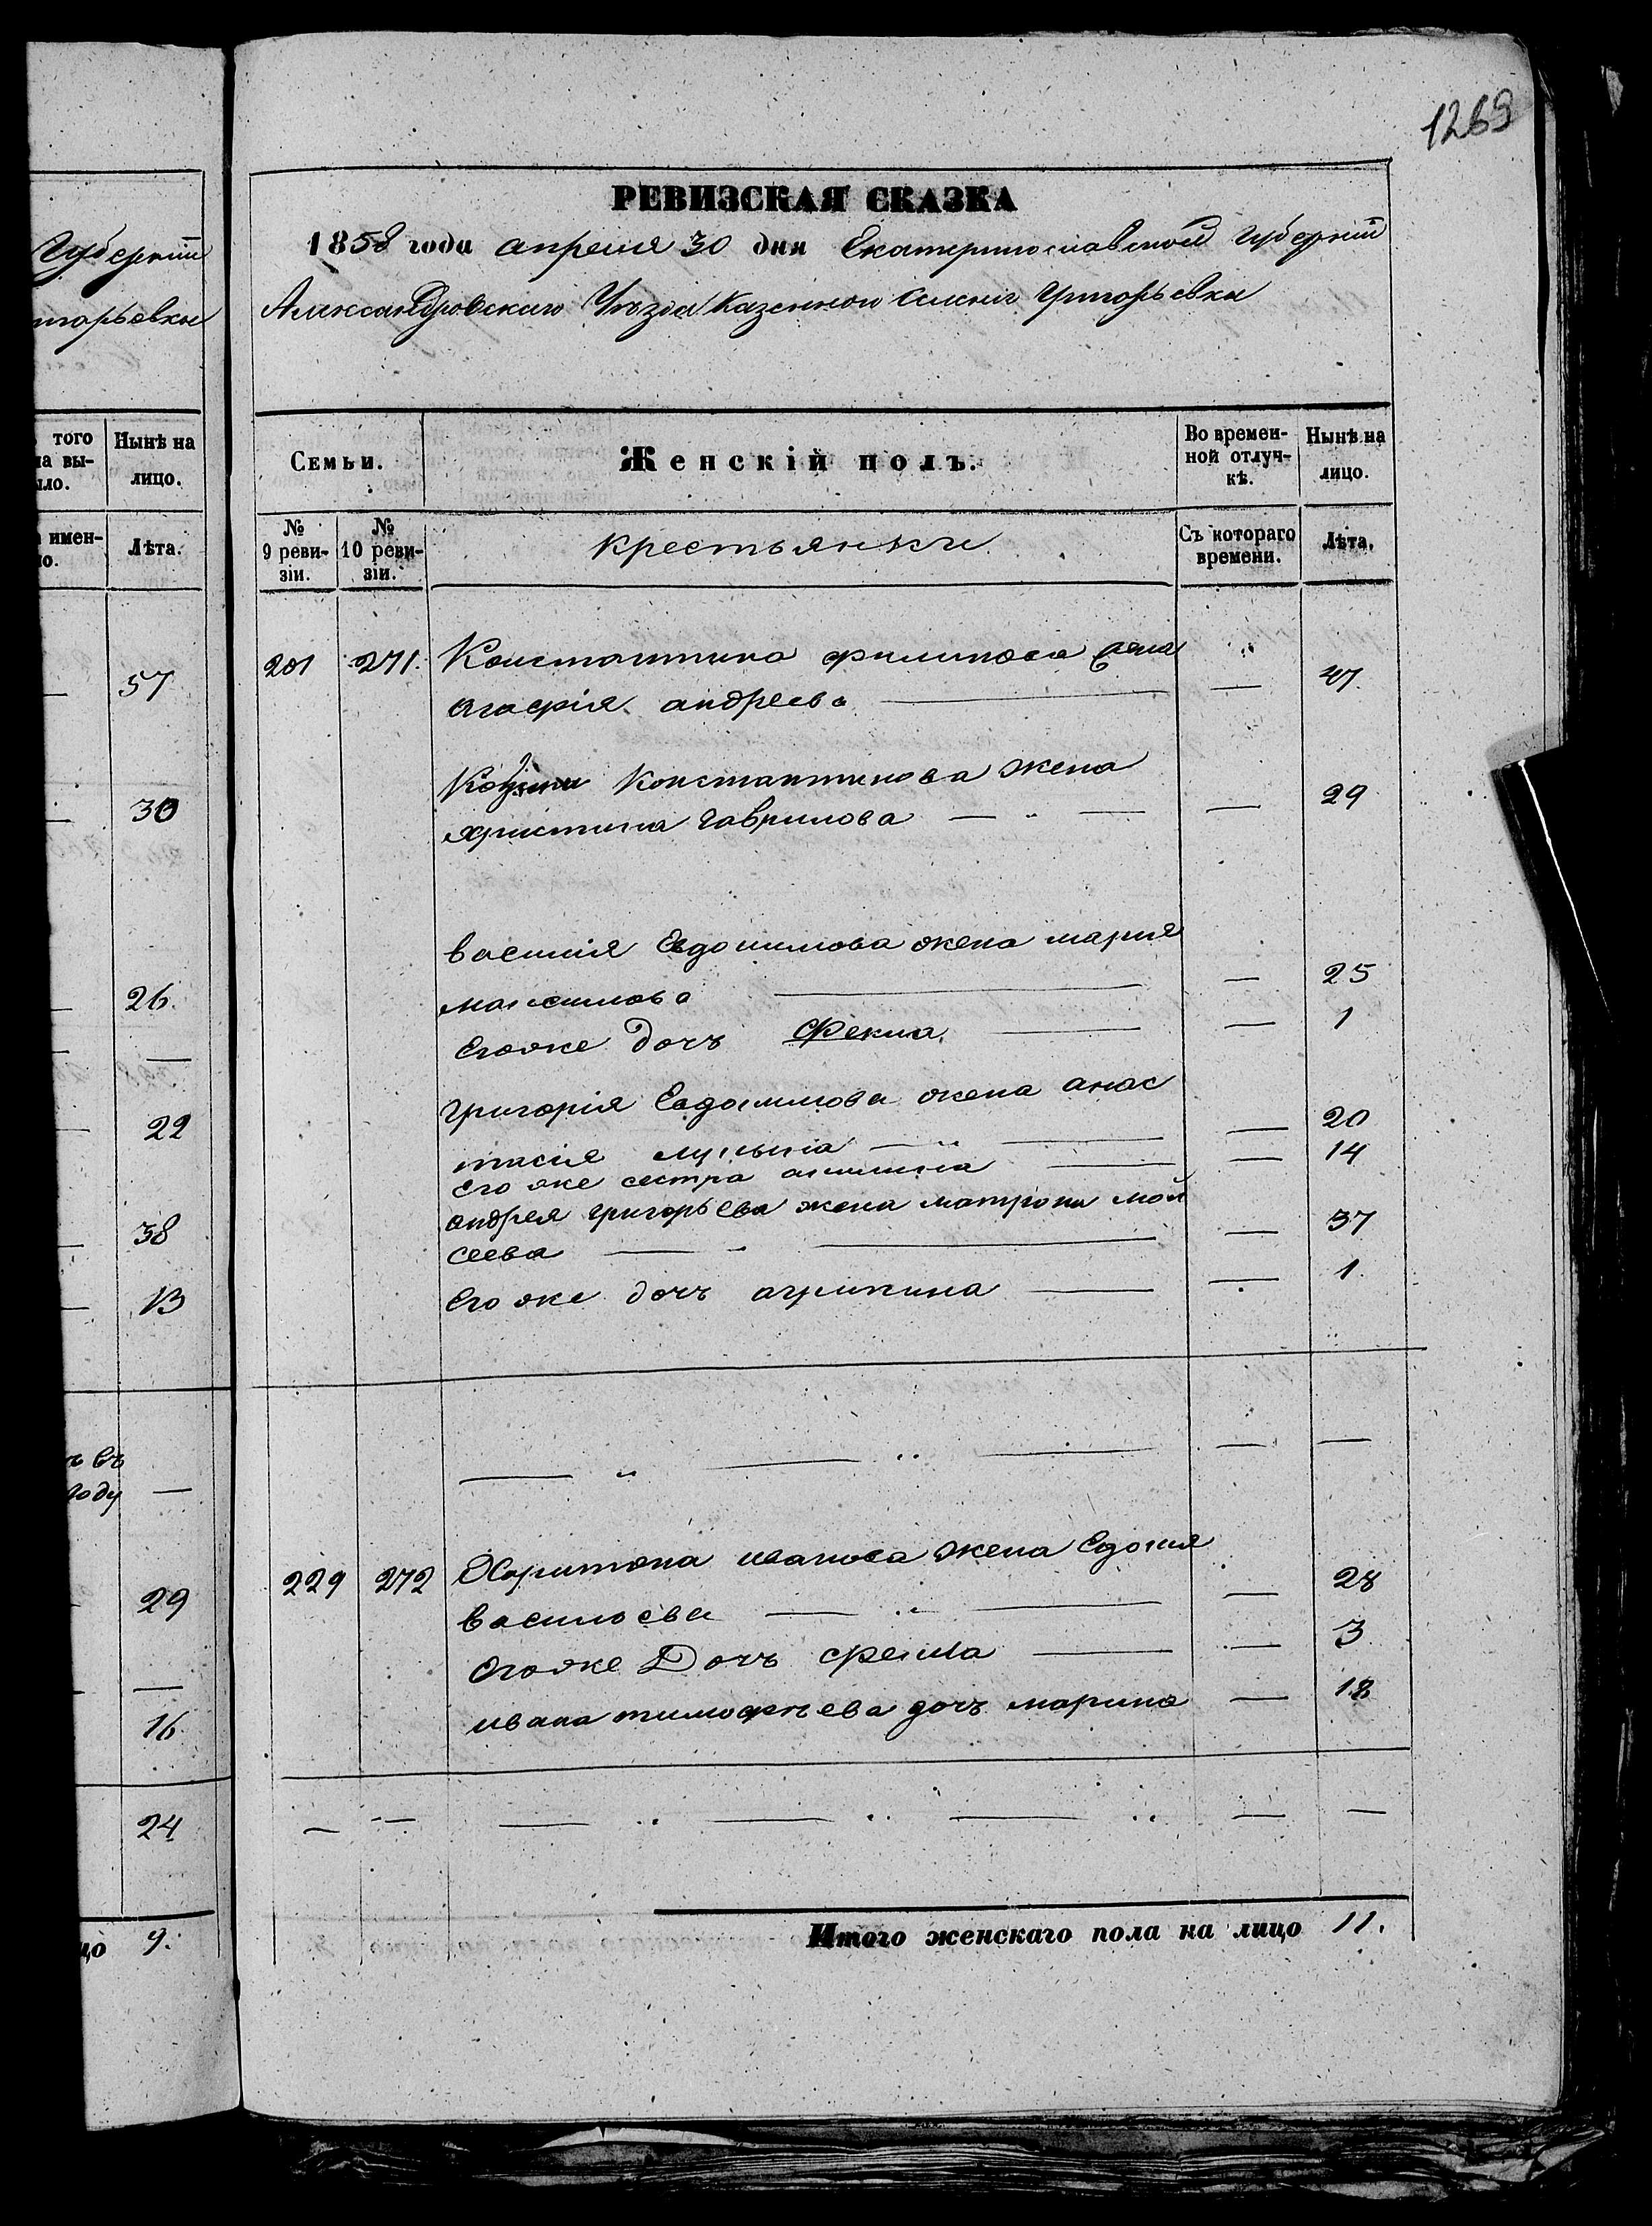 Губерніи
игорьевки
того
на вы-
ыло.
Нынѣ на
лицо.
имен-
но.
Лѣта.
57
30
26.
22
38
13
ъ въ
году
29
16
24
цо 9.
1269
РЕВИЗСКАЯ СКАЗКА
1858 года апреля 30 дня Екатеринославской Губерніи
Александровскаго Уѣзда Казенной Селенія Григорьевки
Семьи.
Женскій полъ.
Во времен-
ной отлуч-
кѣ.
Нынѣ на
лицо.
№
9 реви-
зіи.
№
10 реви-
зіи.
крестьянки.
Съ котораго
времени.
Лѣта.
201 271. Константина филипова жена
агафія андреева — 47.
Константинова жена
христина Гаврилова — 29
василія Евдокимова жена мария
максимова — 25
Егоже дочъ Фекла — 1
григорія Евдокимова жена анас
тасия лукьяна — 20
Его же сестра акилина — 14
андрея григорьева жена матрона мой
сеева — 37
Его же дочъ агрипина — 1.
229 272 Харитона иванова жена Едокия
василоева — 28
Огоже Дочъ фекла — 3
ивана тимофѣева дочъ марина — 18
Итого женскаго пола на лицо 11.